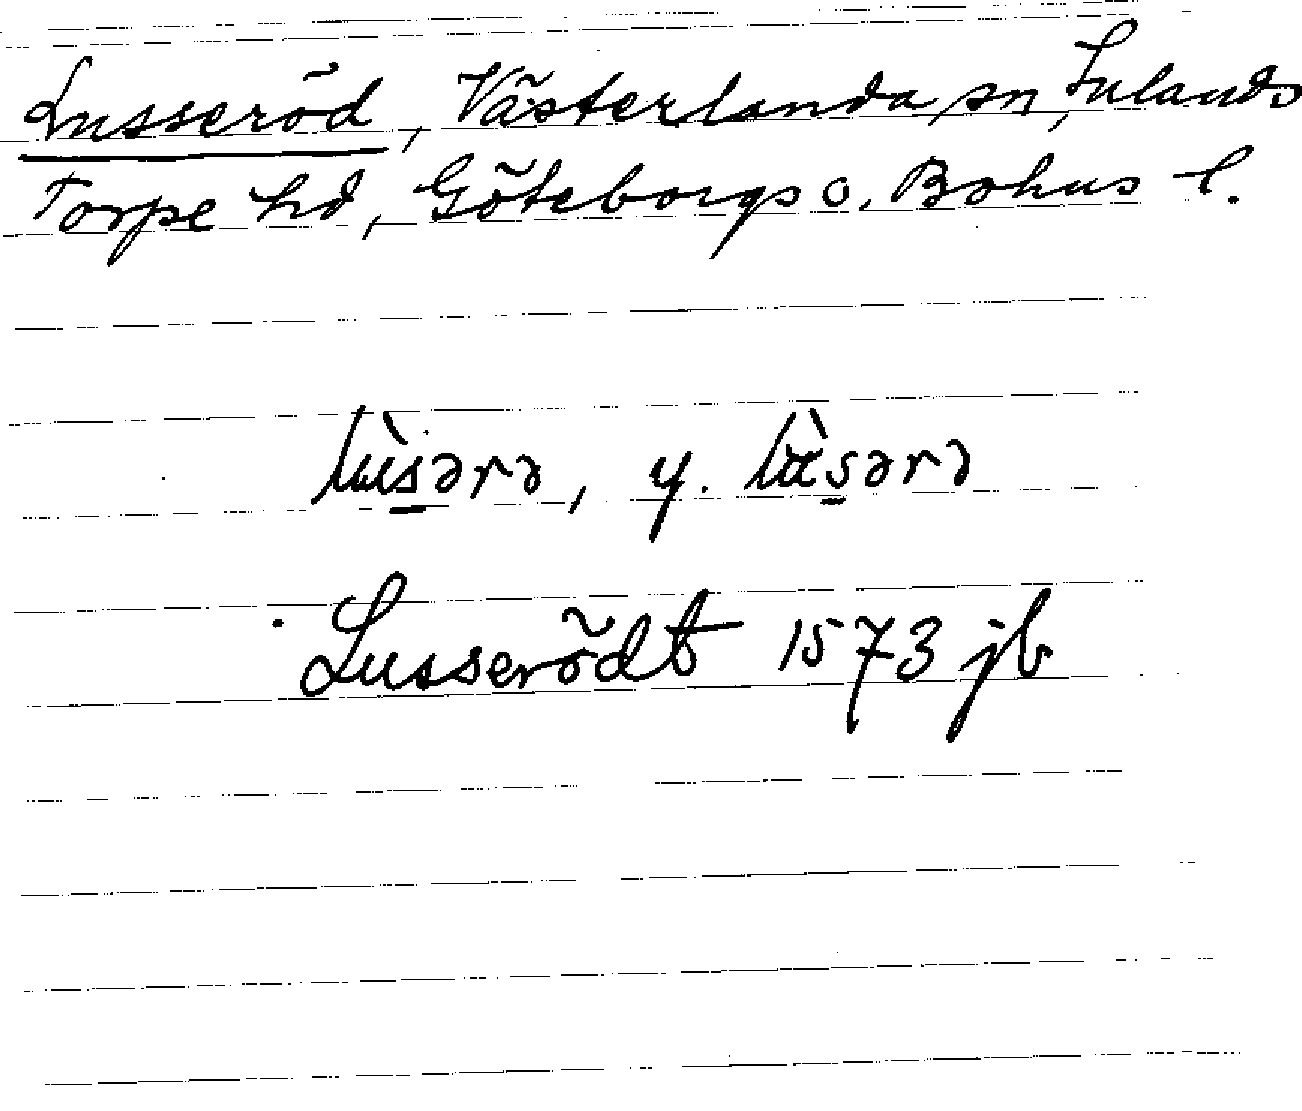 Lusseröd, Västerlanda sn, Inlands
Torpe hd, Göteborgs o. Bohus l.
lùsərə, y. lùsərə
Lusserödt 1573 jb